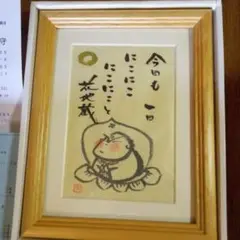 今日も一日
にこにこ
にこにこと
花地蔵
守